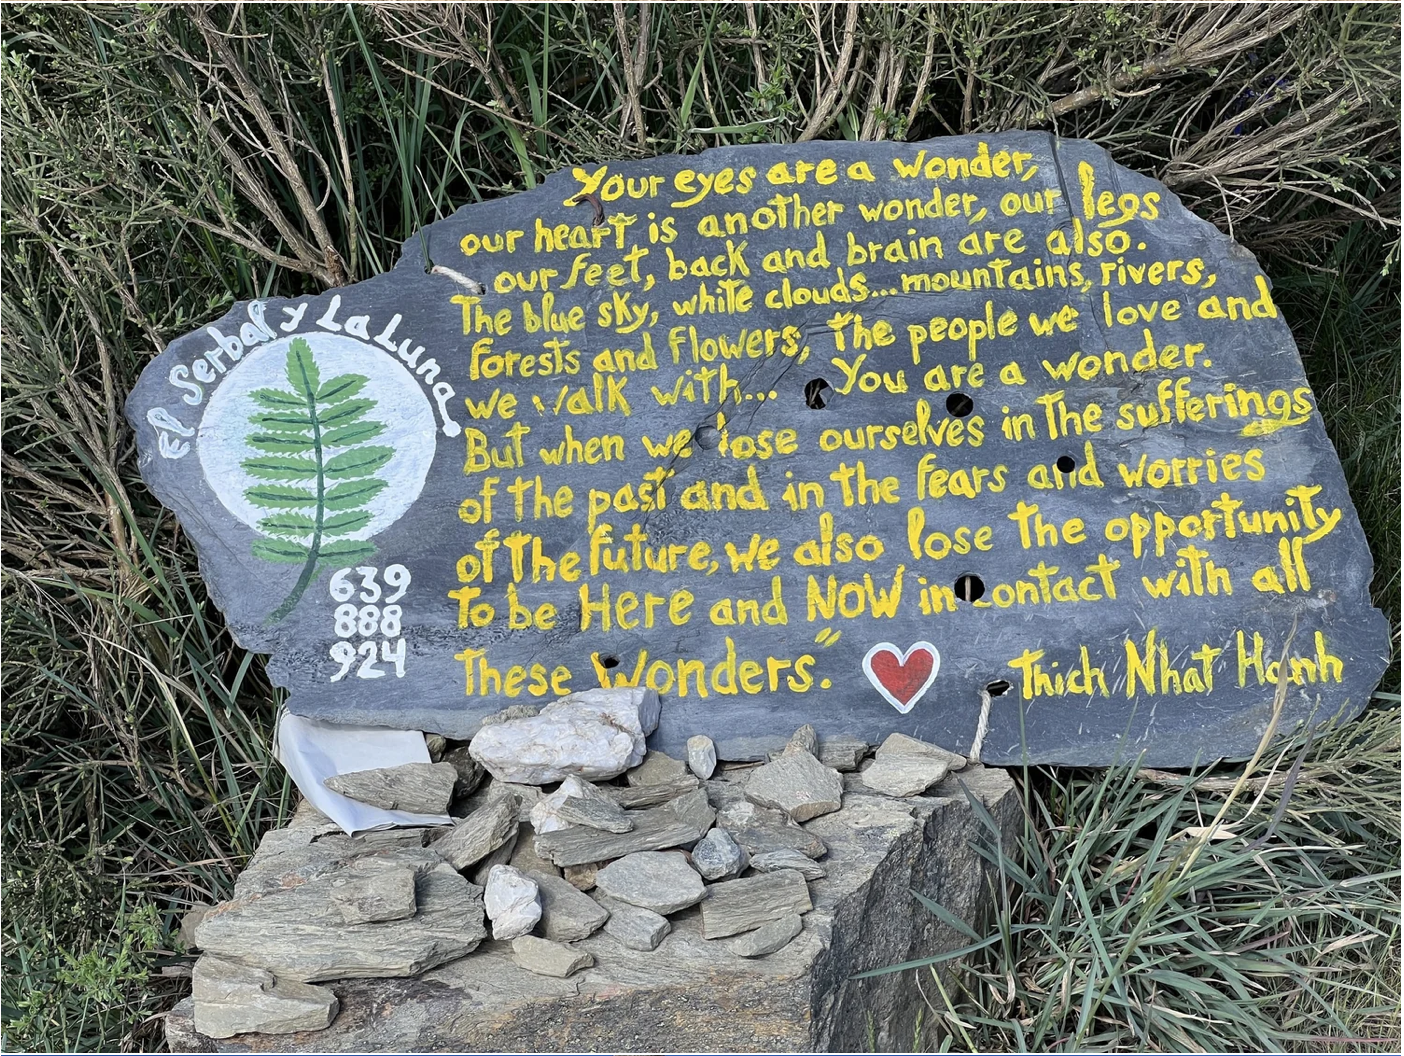 El Serbal y La Luna
639
888
924
Your eyes are a wonder,
our heart is another wonder, our legs
our feet, back and brain are also.
The blue sky, white clouds... mountains, rivers,
forests and flowers, the people we love and
we walk with... You are a wonder.
But when we lose ourselves in the sufferings
of the past and in the fears and worries
of the future, we also lose the opportunity
to be Here and NOW in contact with all
These Wonders."
Thich Nhat Hanh